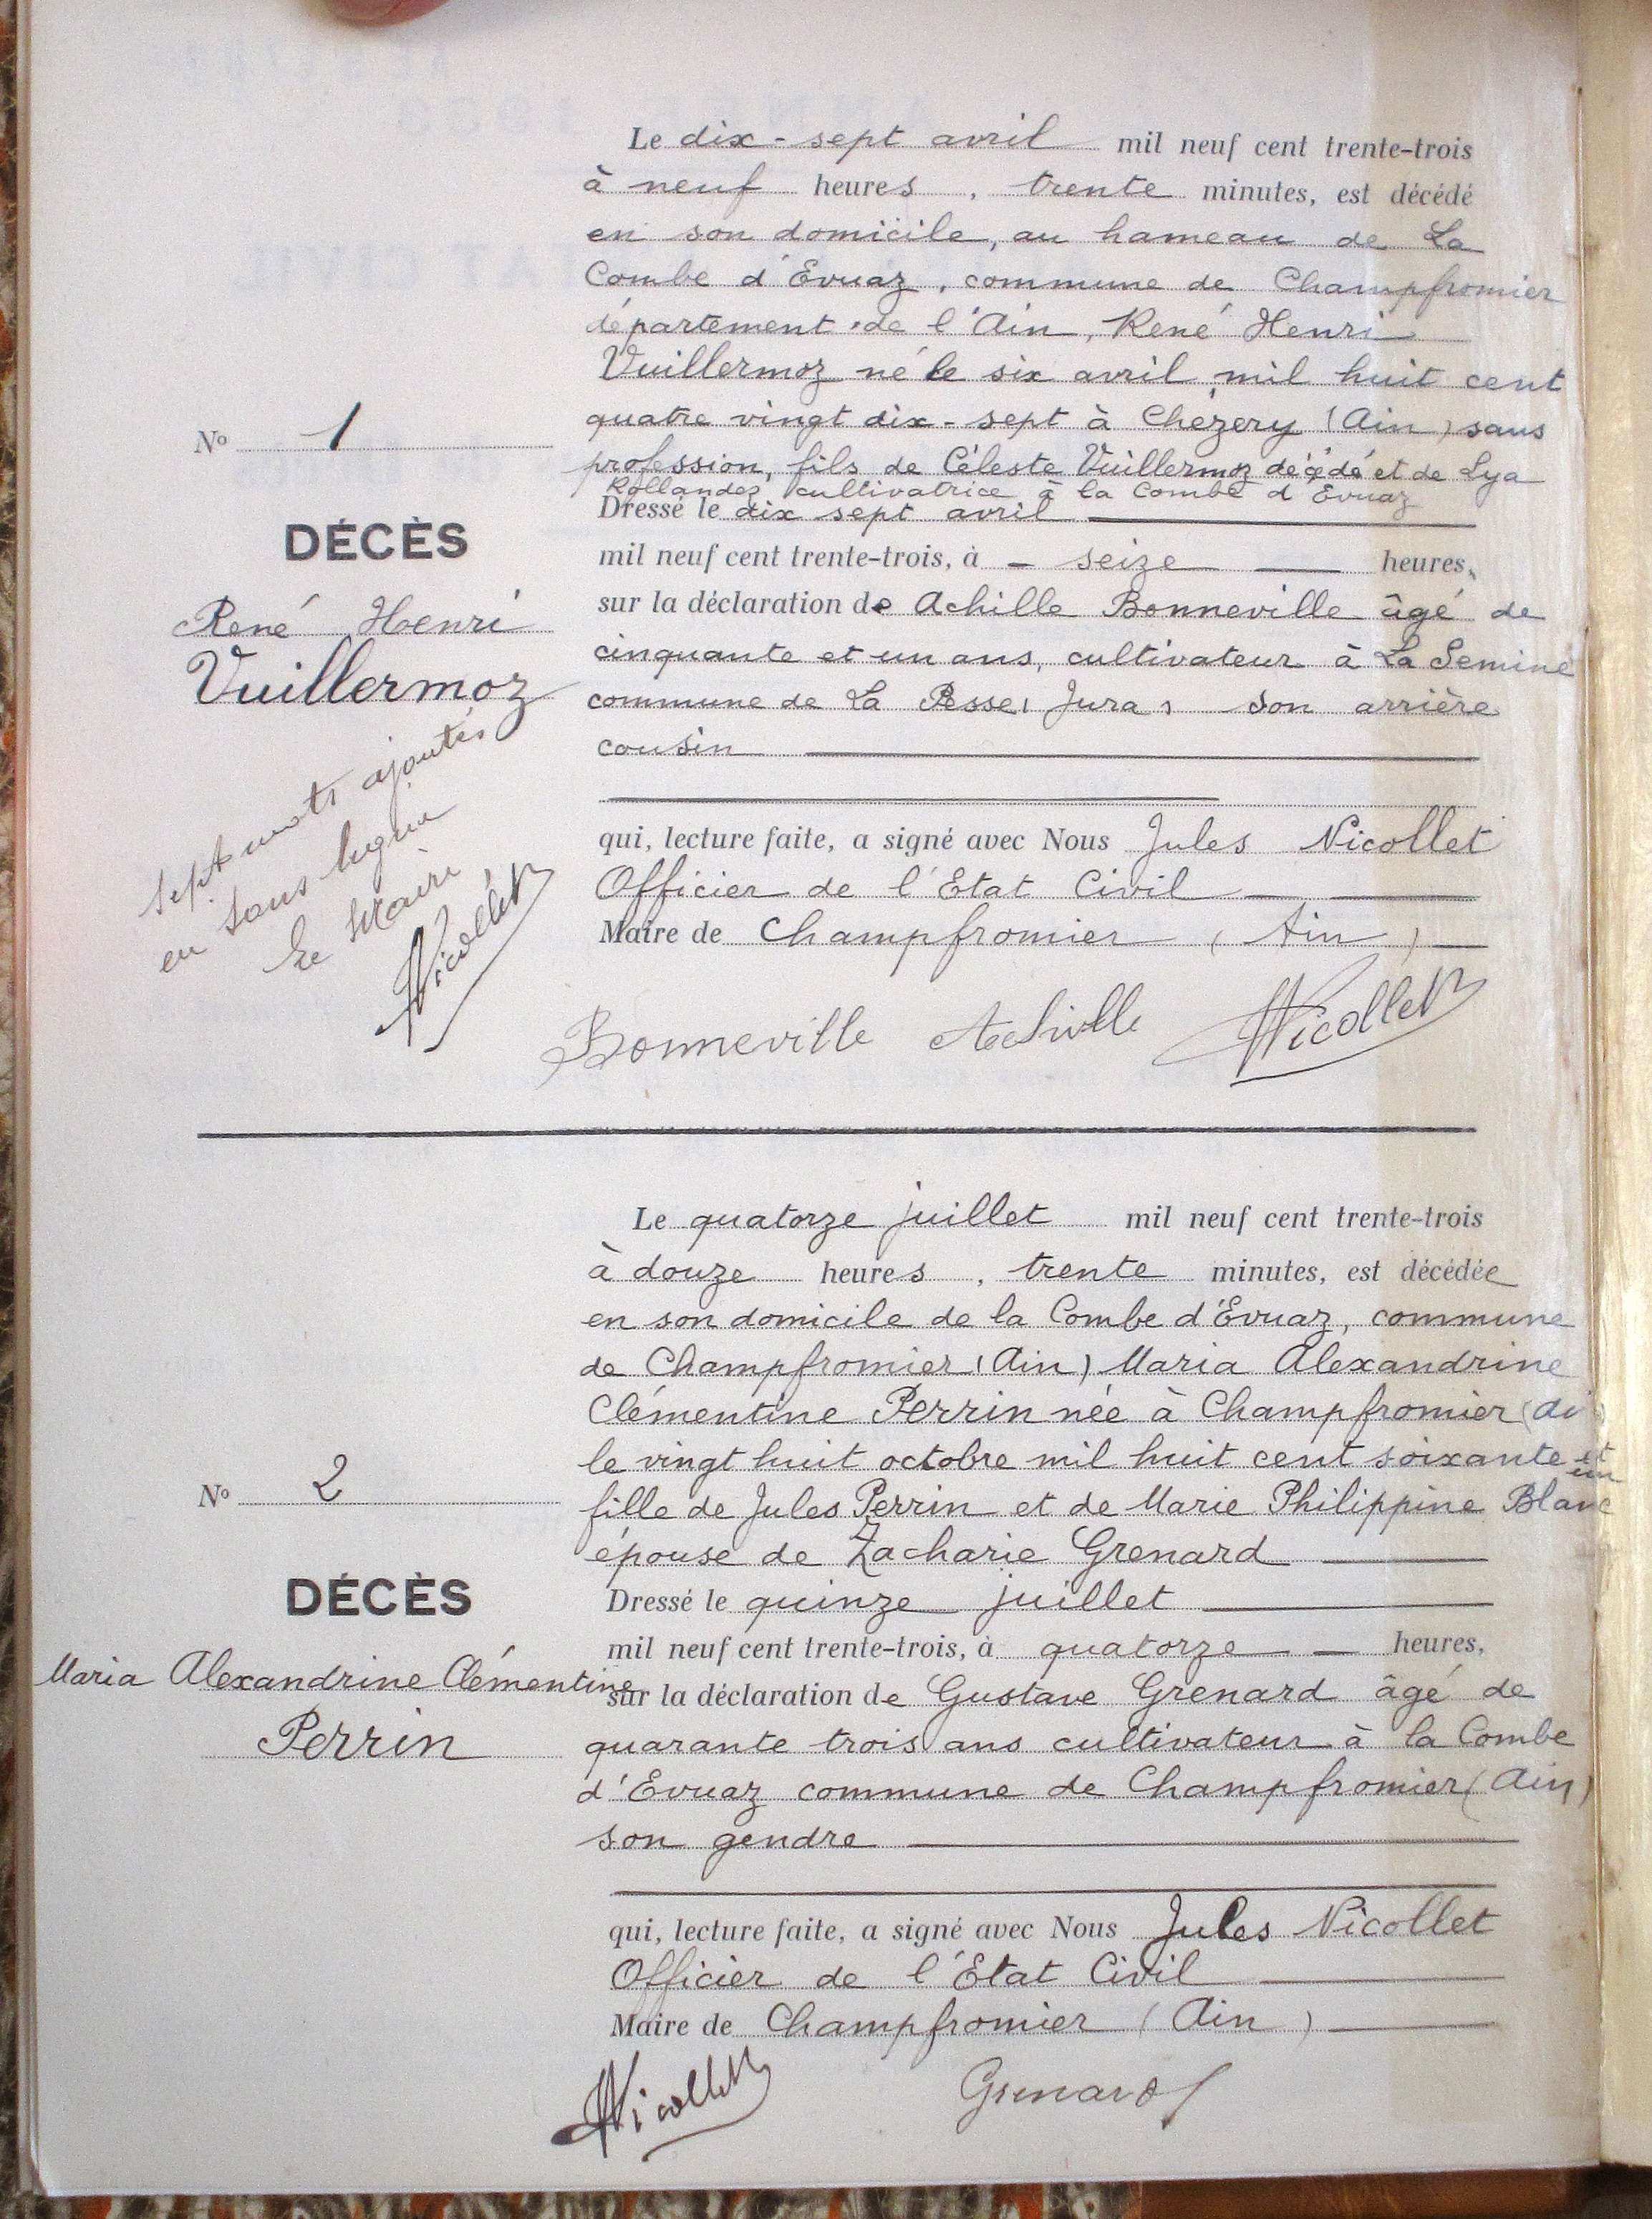 Le dix-sept avril mil neuf cent trente-trois
à neuf heures, trente minutes, est décédé
en son domicile, au hameau de La
Combe d'Evuaz, commune de Champfromier
département de l'Ain, René Henri
Vuillermoz né le six avril mil huit cent
quatre vingt dix-sept à Chézery (Ain) sans
profession, fils de Céleste Vuillermoz décédé et de Lya
Rollandez, cultivatrice à la Combe d'Evuaz
Dressé le dix sept avril
mil neuf cent trente-trois, à seize heures,
sur la déclaration de Achille Bonneville âgé de
cinquante et un ans, cultivateur à La Semine
commune de La Pesse (Jura) son arrière
cousin
qui, lecture faite, a signé avec Nous Jules Nicollet
Officier de l'Etat Civil
Maire de Champfromier (Ain)
Bonneville Achille Nicollet
N° 1
DÉCÈS
René Henri
Vuillermoz
sept mots ajoutés
en sous ligne
Le Maire,
Nicollet
Le quatorze juillet mil neuf cent trente-trois
à douze heures, trente minutes, est décédée
en son domicile de la Combe d'Evuaz, commune
de Champfromier (Ain) Maria Alexandrine
Clémentine Perrin née à Champfromier
le vingt huit octobre mil huit cent soixante et
un
fille de Jules Perrin et de Marie Philippine Blanc
épouse de Zacharie Grenard
Dressé le quinze juillet
mil neuf cent trente-trois, à quatorze heures,
sur la déclaration de Gustave Grenard âgé de
quarante trois ans cultivateur à la Combe
d'Evuaz commune de Champfromier (Ain)
son gendre
qui, lecture faite, a signé avec Nous Jules Nicollet
Officier de l'Etat Civil
Maire de Champfromier (Ain)
Nicollet Grenard
N° 2
DÉCÈS
Maria Alexandrine Clémentine
Perrin